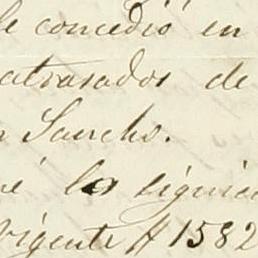 le concedió en
atrasados de
n Sancho.
ué los siguien
vigente # 1582